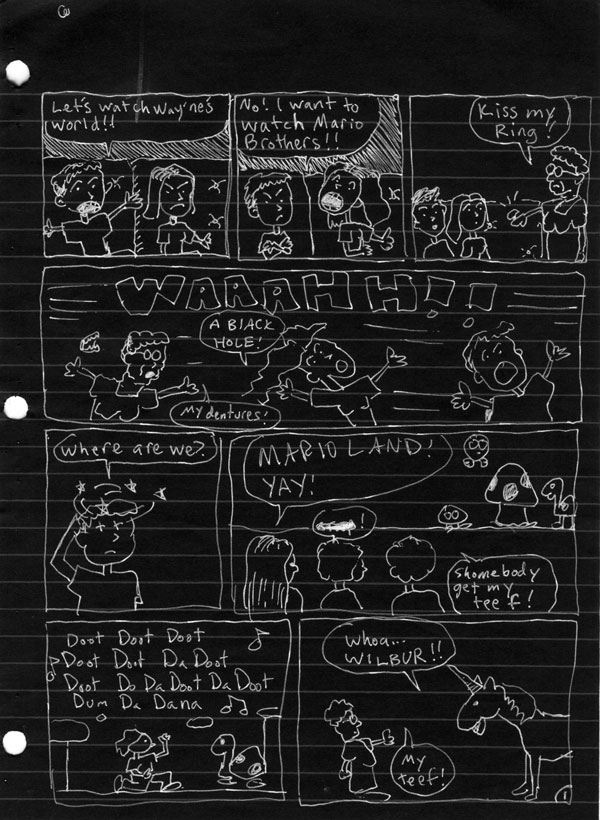 Let's watch Wayne's
World!!
No! I want to
watch Mario
Brothers!!
Kiss my
Ring!
WAAAHH!!
A BlACK
HOLE!
My dentures!
Where are we?
MARIO LAND!
YAY!
Shomebody
get my
teef!
Doot Doot Doot
Doot Doot Da Doot
Doot Do Da Doot Da Doot
Dum Da Dana
Whoa...
WILBUR!!
My
teef!
1